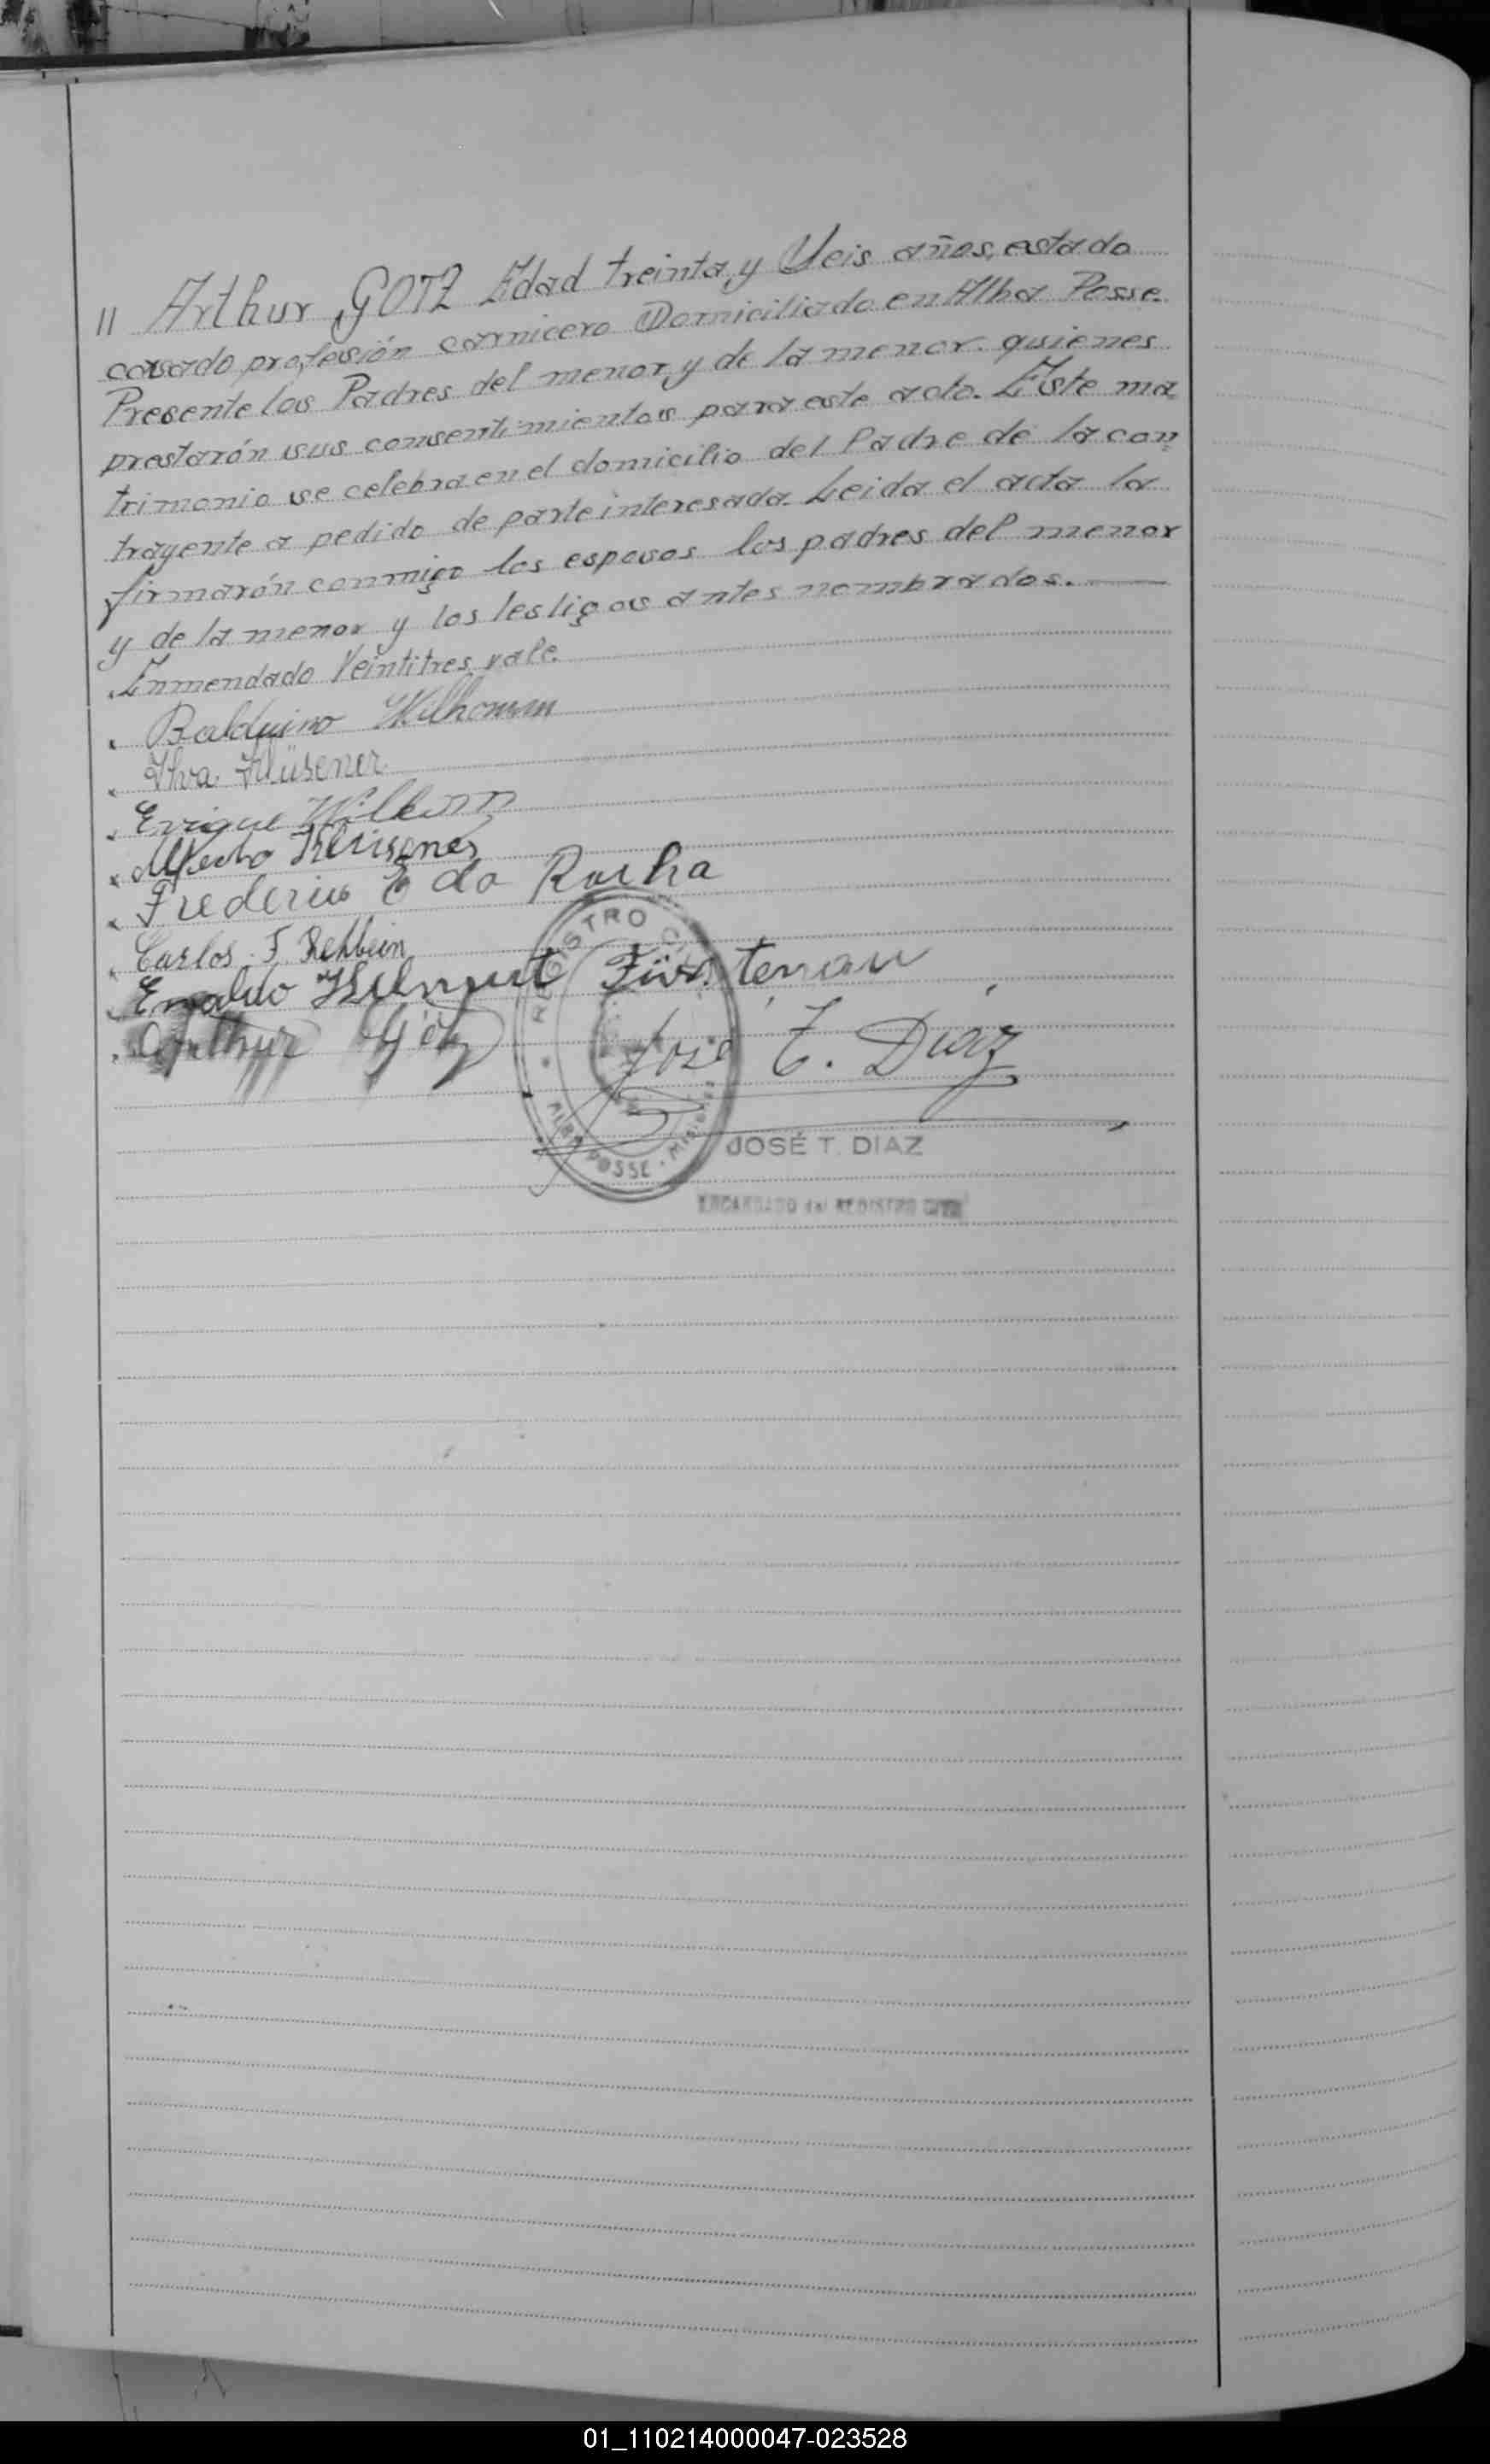 11 Arthur GOTZ Edad treinta y Seis años, estado
casado profesión carnicero Domiciliado en Alba Posse.
Presente los Padres del menor y de la menor. quienes
prestarón sus consentimientos para este acto. Este ma
trimonio se celebra en el domicilio del Padre de la con
trayente a pedido de parte interesada. Leida el acta la
firmarón conmigo los esposos los padres del menor
y de la menor y los testigos antes nombrados.
Enmendado Veintitres vale.
Balduino
Ilva Klüsener
Enrique
Frederico E da Rocha
Carlos F. Rehbein
Helmut Fürstenau
Arthur Götz
José T. Diaz
REGISTRO
ALBA POSSE - Misiones
JOSÉ T. DIAZ
ENCARGADO del REGISTRO CIVIL
01_110214000047-023528